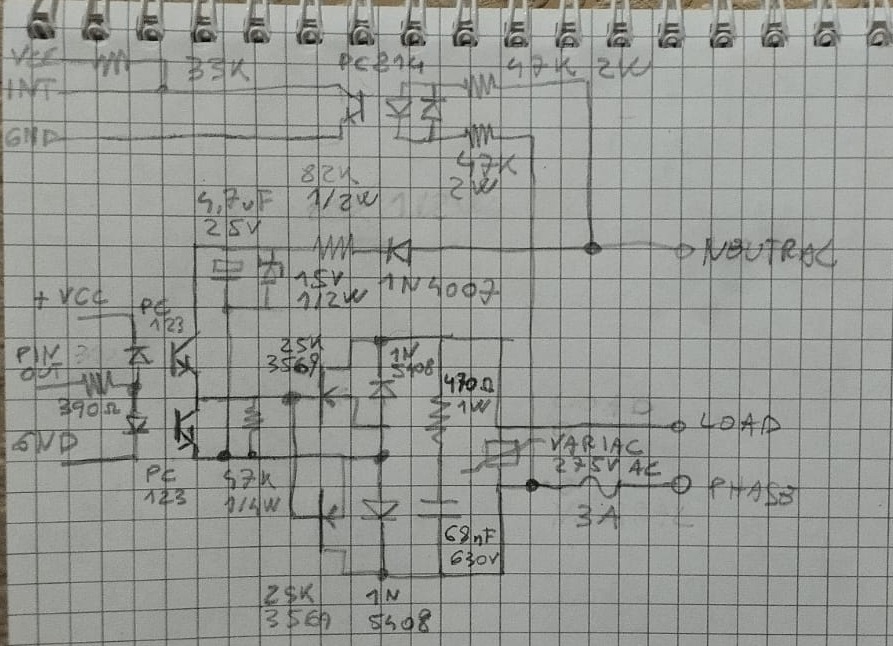 VCC
33K
PC814
47K 2W
INT
GND
47K
2W
82K
1/2W
4,7uF
25V
NEUTRAL
15V
1/2W
1N4007
+VCC
PC
123
PIN
OUT
390Ω
GND
25K
3569
1N
5408
470Ω
1W
LOAD
VARIAC
275V AC
PHASE
3A
PC
123
47K
1/4W
68nF
630V
2SK
3569
1N
5408